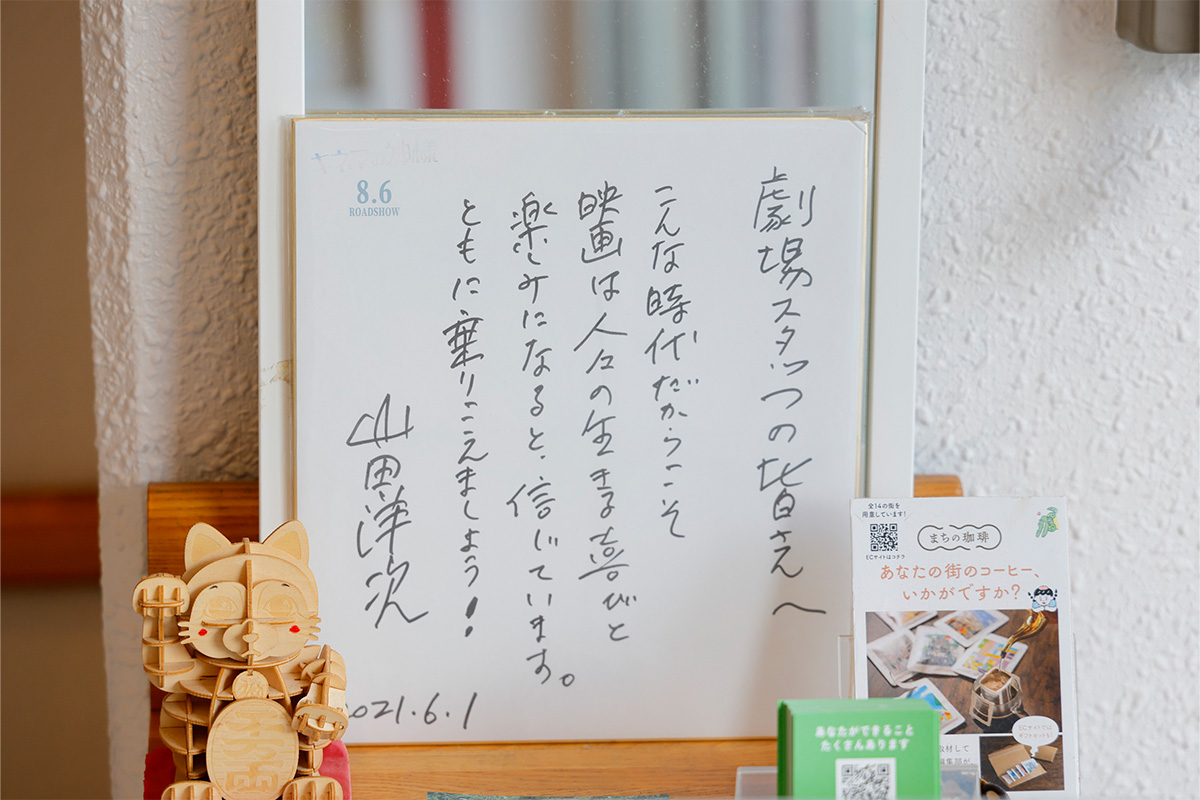 劇場スタッフの皆さんへ
こんな時代だからこそ
映画は人々の生きる喜びと
楽しみになると、信じています。
ともに乗りこえましょう!
山田洋次
2021.6.1
キネマの神様
8.6
ROADSHOW
全14の街を
用意しています!
ECサイトはコチラ
まちの珈琲
あなたの街のコーヒー、
いかがですか?
ECサイトでは
ギフトセットも!
取材して
編集部が
あなたができること
たくさんあります